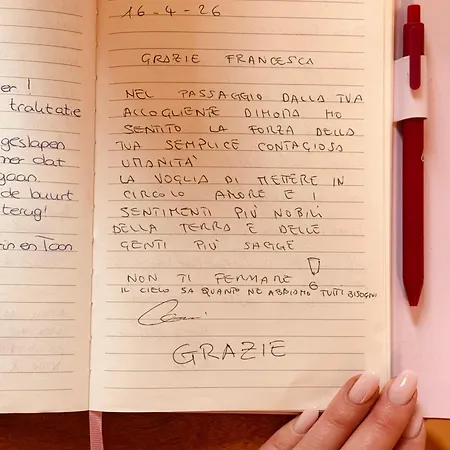 er!
tralitatie
geslapen
mer dat
gaan.
de buurt
terug!
en Toon
16-4-26
GRAZIE FRANCESCA
NEL PASSAGGIO DALLA TUA
ACCOGLIENTE DIMORA HO
SENTITO LA FORZA DELLA
TUA SEMPLICE CONTAGIOSA
UMANITA'
LA VOGLIA DI METTERE IN
CIRCOLO AMORE E I
SENTIMENTI PIÙ NOBILI
DELLA TERRA E DELLE
GENTI PIÙ SAGGE
NON TI FERMARE !
IL CIELO SA QUANTO NE ABBIAMO TUTTI BISOGNO
GRAZIE